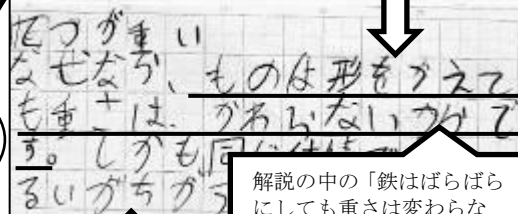 てつが重い
なぜなら、ものは形をかえて
も重さは、かわらないからで
す。しかも、同じ
るいがちが
解説の中の「鉄はばらばら
にしても重さは変わらな